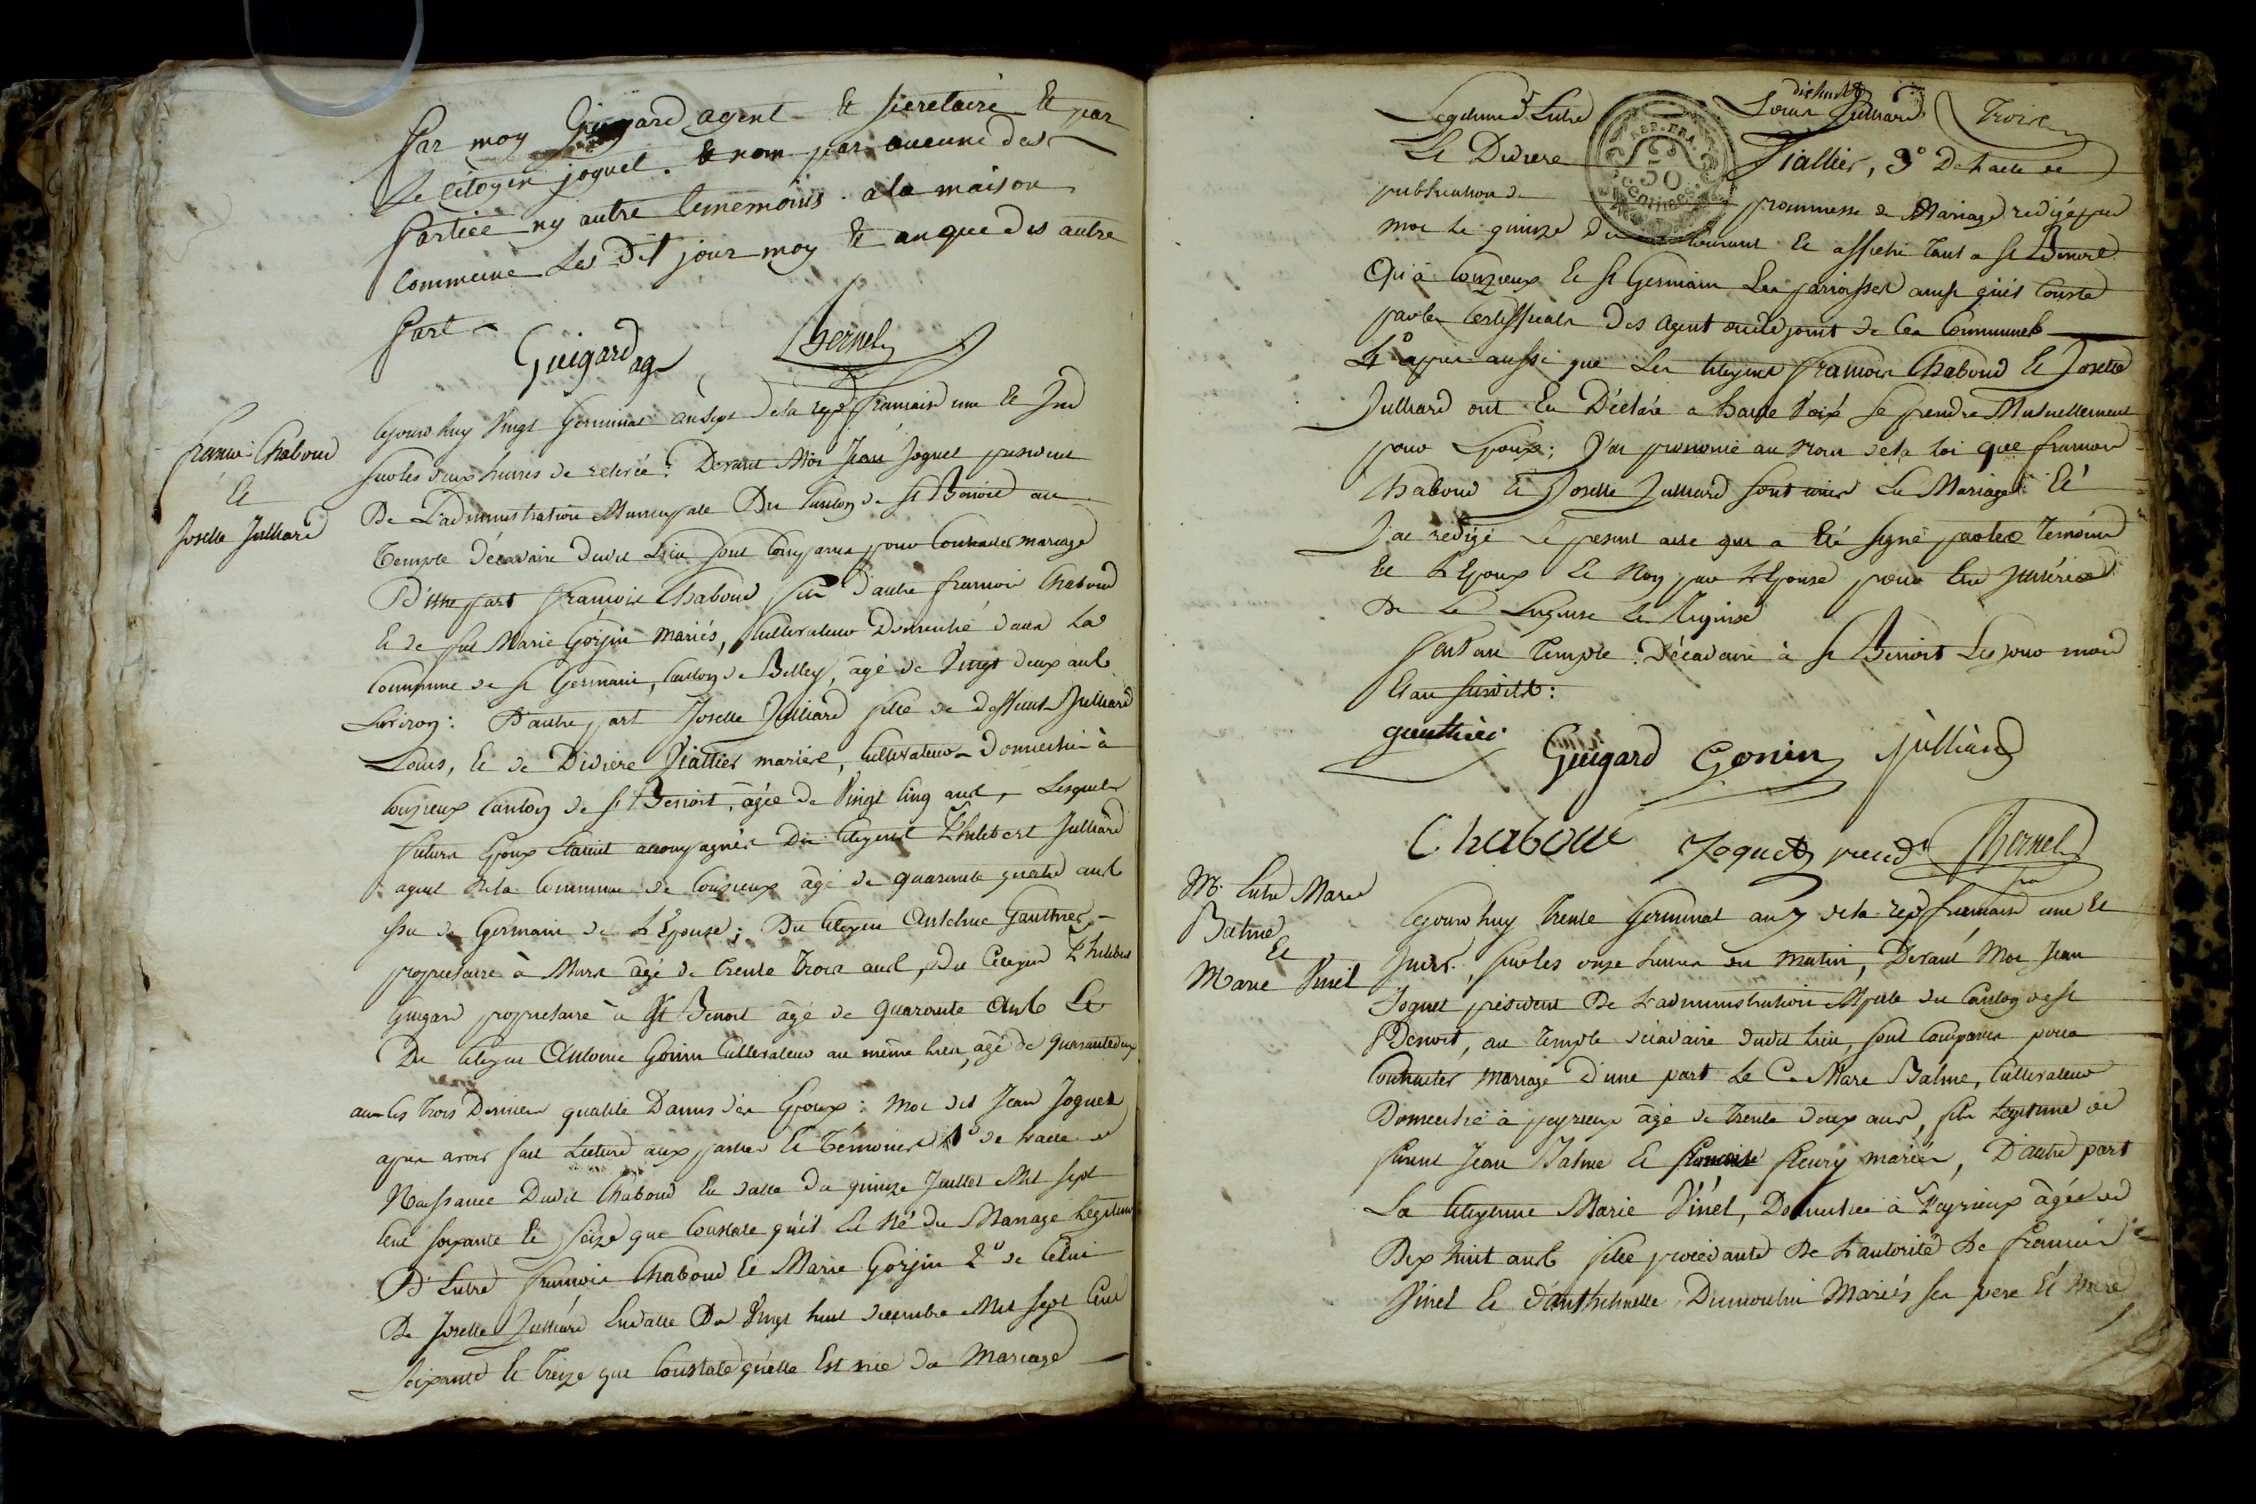 Par moy Guigard agent Et secretaire Et par
Le Citoyen joguet. & non par aucune des
Partiee ny autre temmoins. a la maison
Commeune Les Dit jour moy Et an que des autre
Part
Guigard ag
Bernel
francois Chaboud
Et
Josette Julliard
Cejourdhuy Vingt Germinal an Sept de la rep. francaise une Et Ind
sur les deux heures de relevée. Devant Moi Jean Joguet president
De L'administration Municipale Du Canton de St Benoit au
Temple décadaire dudit Lieu sont Comparus pour Contracter mariage
D'une part françois Chaboud fils d'autre francois Chaboud
Et de Marie Gojin mariés, Cultivateur Domicilié dans La
Commune de St Germain, Canton de Belley, âgé de Vingt deux ans
Environ: D'autre part Josette Julliard fille de deffunt Julliard
Louis, Et de Didiere Viallier mariés, Cultivateur Domicilié à
Conzieux Canton de St Benoit, âgée de Vingt Cinq ans, Lesquels
futurs Epoux Etaient accompagnés Du Citoyen Philibert Julliard
agent de la Commune de Conzieux âgé de quarante quatre ans
de Germain de L'Epouse; Du Citoyen Antelme Gauthier
propriétaire à Murs âgé de trente Trois ans, Du Citoyen Philibert
Guigard propriétaire à St Benoit âgé de quarante Ans Et
Du Citoyen Antoine Gonin Cultivateur au même Lieu, âgé de quarante deux
ans Les Trois Derniers qualité D'amis des Epoux: Moi dit Jean Joguet
apres avoir fait Lecture aux parties Et Témoins 1º de L'acte de
Naissance Dudit Chaboud En datte du quinze Juillet Mil Sept
Cent soixante Et Seize que Constate qu'il Est Né du Mariage Légitime
D'Entre francois Chaboud Et Marie Gojin 2º de Celui
De Josette Julliard En datte Du Vingt huit decembre Mil Sept Cent
Soixante Et treize que Constate qu'elle Est née du Mariage
Legitime d'Entre Louis Julliard
Trois
Et Didiere Viallier, 3º De L'acte de
publication de promesse de Mariage redigé par
moi Le quinze Du Courant Et affiché tant a St Benoit
Qu'à Conzieux Et St Germain Les parroisses ainsi qu'il Conste
par les Certifficats Des Agent ou adjoint de Ces Communes
4º apres aussi que Les Citoyens francois Chaboud Et Josette
Julliard ont Eu Déclaré a haute Voix Se prendre Mutuellement
pour Epoux; J'ai prononcé au Nom de la Loi que francois
Chaboud Et Josette Julliard sont unis En Mariage Et
J'ai redigé Le present acte qui a Eté Signé par les Temoins
Et L'Epoux Et Non par L'Epouse pour
De Le Enquise Et Requise
fait au Temple Décadaire à St Benoit Les jour mois
Et an susdits:
gauthier
Guigard Gonin julliard
Chaboud Joguet presdt Bernel
M. Entre Marc
Balme
Et
Marie Vinel
Cejourdhuy trente Germinal an 7 de la rep. francaise une Et
Indiv. sur les onze heures du matin, Devant Moi Jean
Joguet président De L'administration Mpale du Canton de St
Benoit, au temple décadaire dudit Lieu, sont Comparus pour
Contracter mariage D'une part Le C. Marc Balme, Cultivateur
Domicilié à peyrieux âgé de trente deux ans, fils Legitime de
Jean Balme Et francoise fleury mariés, D'autre part
La Citoyenne Marie Vinel, Domiciliée à Peyrieux âgée de
Dix huit ans fille procédante De L'autorité De francois
Vinel Et d'Anthelmette Dumoulin Mariés ses pere Et Mere